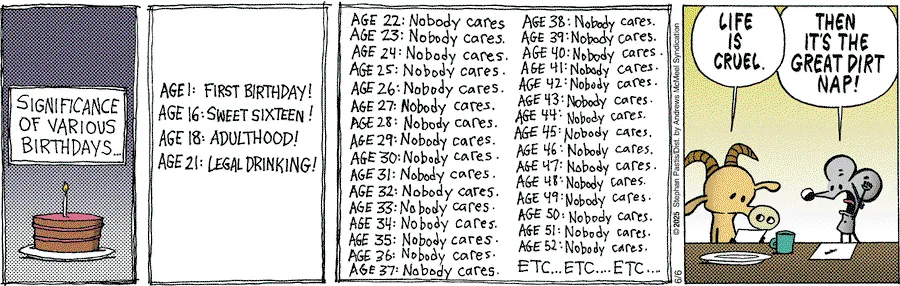 SIGNIFICANCE
OF VARIOUS
BIRTHDAYS...
AGE 1: FIRST BIRTHDAY!
AGE 16: SWEET SIXTEEN!
AGE 18: ADULTHOOD!
AGE 21: LEGAL DRINKING!
AGE 22: Nobody cares
AGE 23: Nobody cares.
AGE 24: Nobody cares.
AGE 25: Nobody cares.
AGE 26: Nobody cares.
AGE 27: Nobody cares.
AGE 28: Nobody cares.
AGE 29: Nobody cares.
AGE 30: Nobody cares.
AGE 31: Nobody cares.
AGE 32: Nobody cares.
AGE 33: Nobody cares.
AGE 34: Nobody cares.
AGE 35: Nobody cares.
AGE 36: Nobody cares.
AGE 37: Nobody cares.
AGE 38: Nobody cares.
AGE 39: Nobody cares.
AGE 40: Nobody cares.
AGE 41: Nobody cares.
AGE 42: Nobody cares.
AGE 43: Nobody cares.
AGE 44: Nobody cares.
AGE 45: Nobody cares.
AGE 46: Nobody cares.
AGE 47: Nobody cares.
AGE 48: Nobody cares.
AGE 49: Nobody cares.
AGE 50: Nobody cares.
AGE 51: Nobody cares.
AGE 52: Nobody cares.
ETC... ETC.... ETC....
© 2025 Stephan Pastis/Dist. by Andrews McMeel Syndication
6/6
LIFE
IS
CRUEL.
THEN
IT'S THE
GREAT DIRT
NAP!